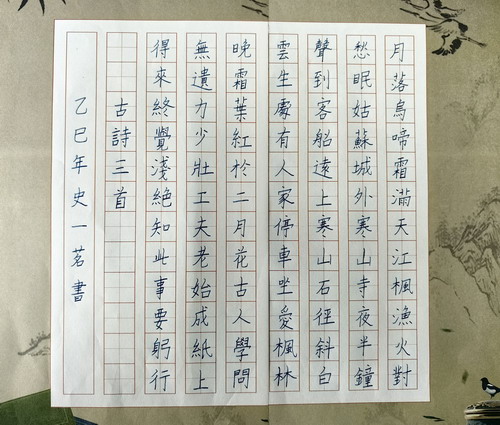 月落烏啼霜滿天江楓漁火對
愁眠姑蘇城外寒山寺夜半鐘
聲到客船遠上寒山石徑斜白
雲生處有人家停車坐愛楓林
晚霜葉紅於二月花古人學問
無遺力少壯工夫老始成紙上
得來終覺淺絶知此事要躬行
古詩三首
乙巳年史一茗書